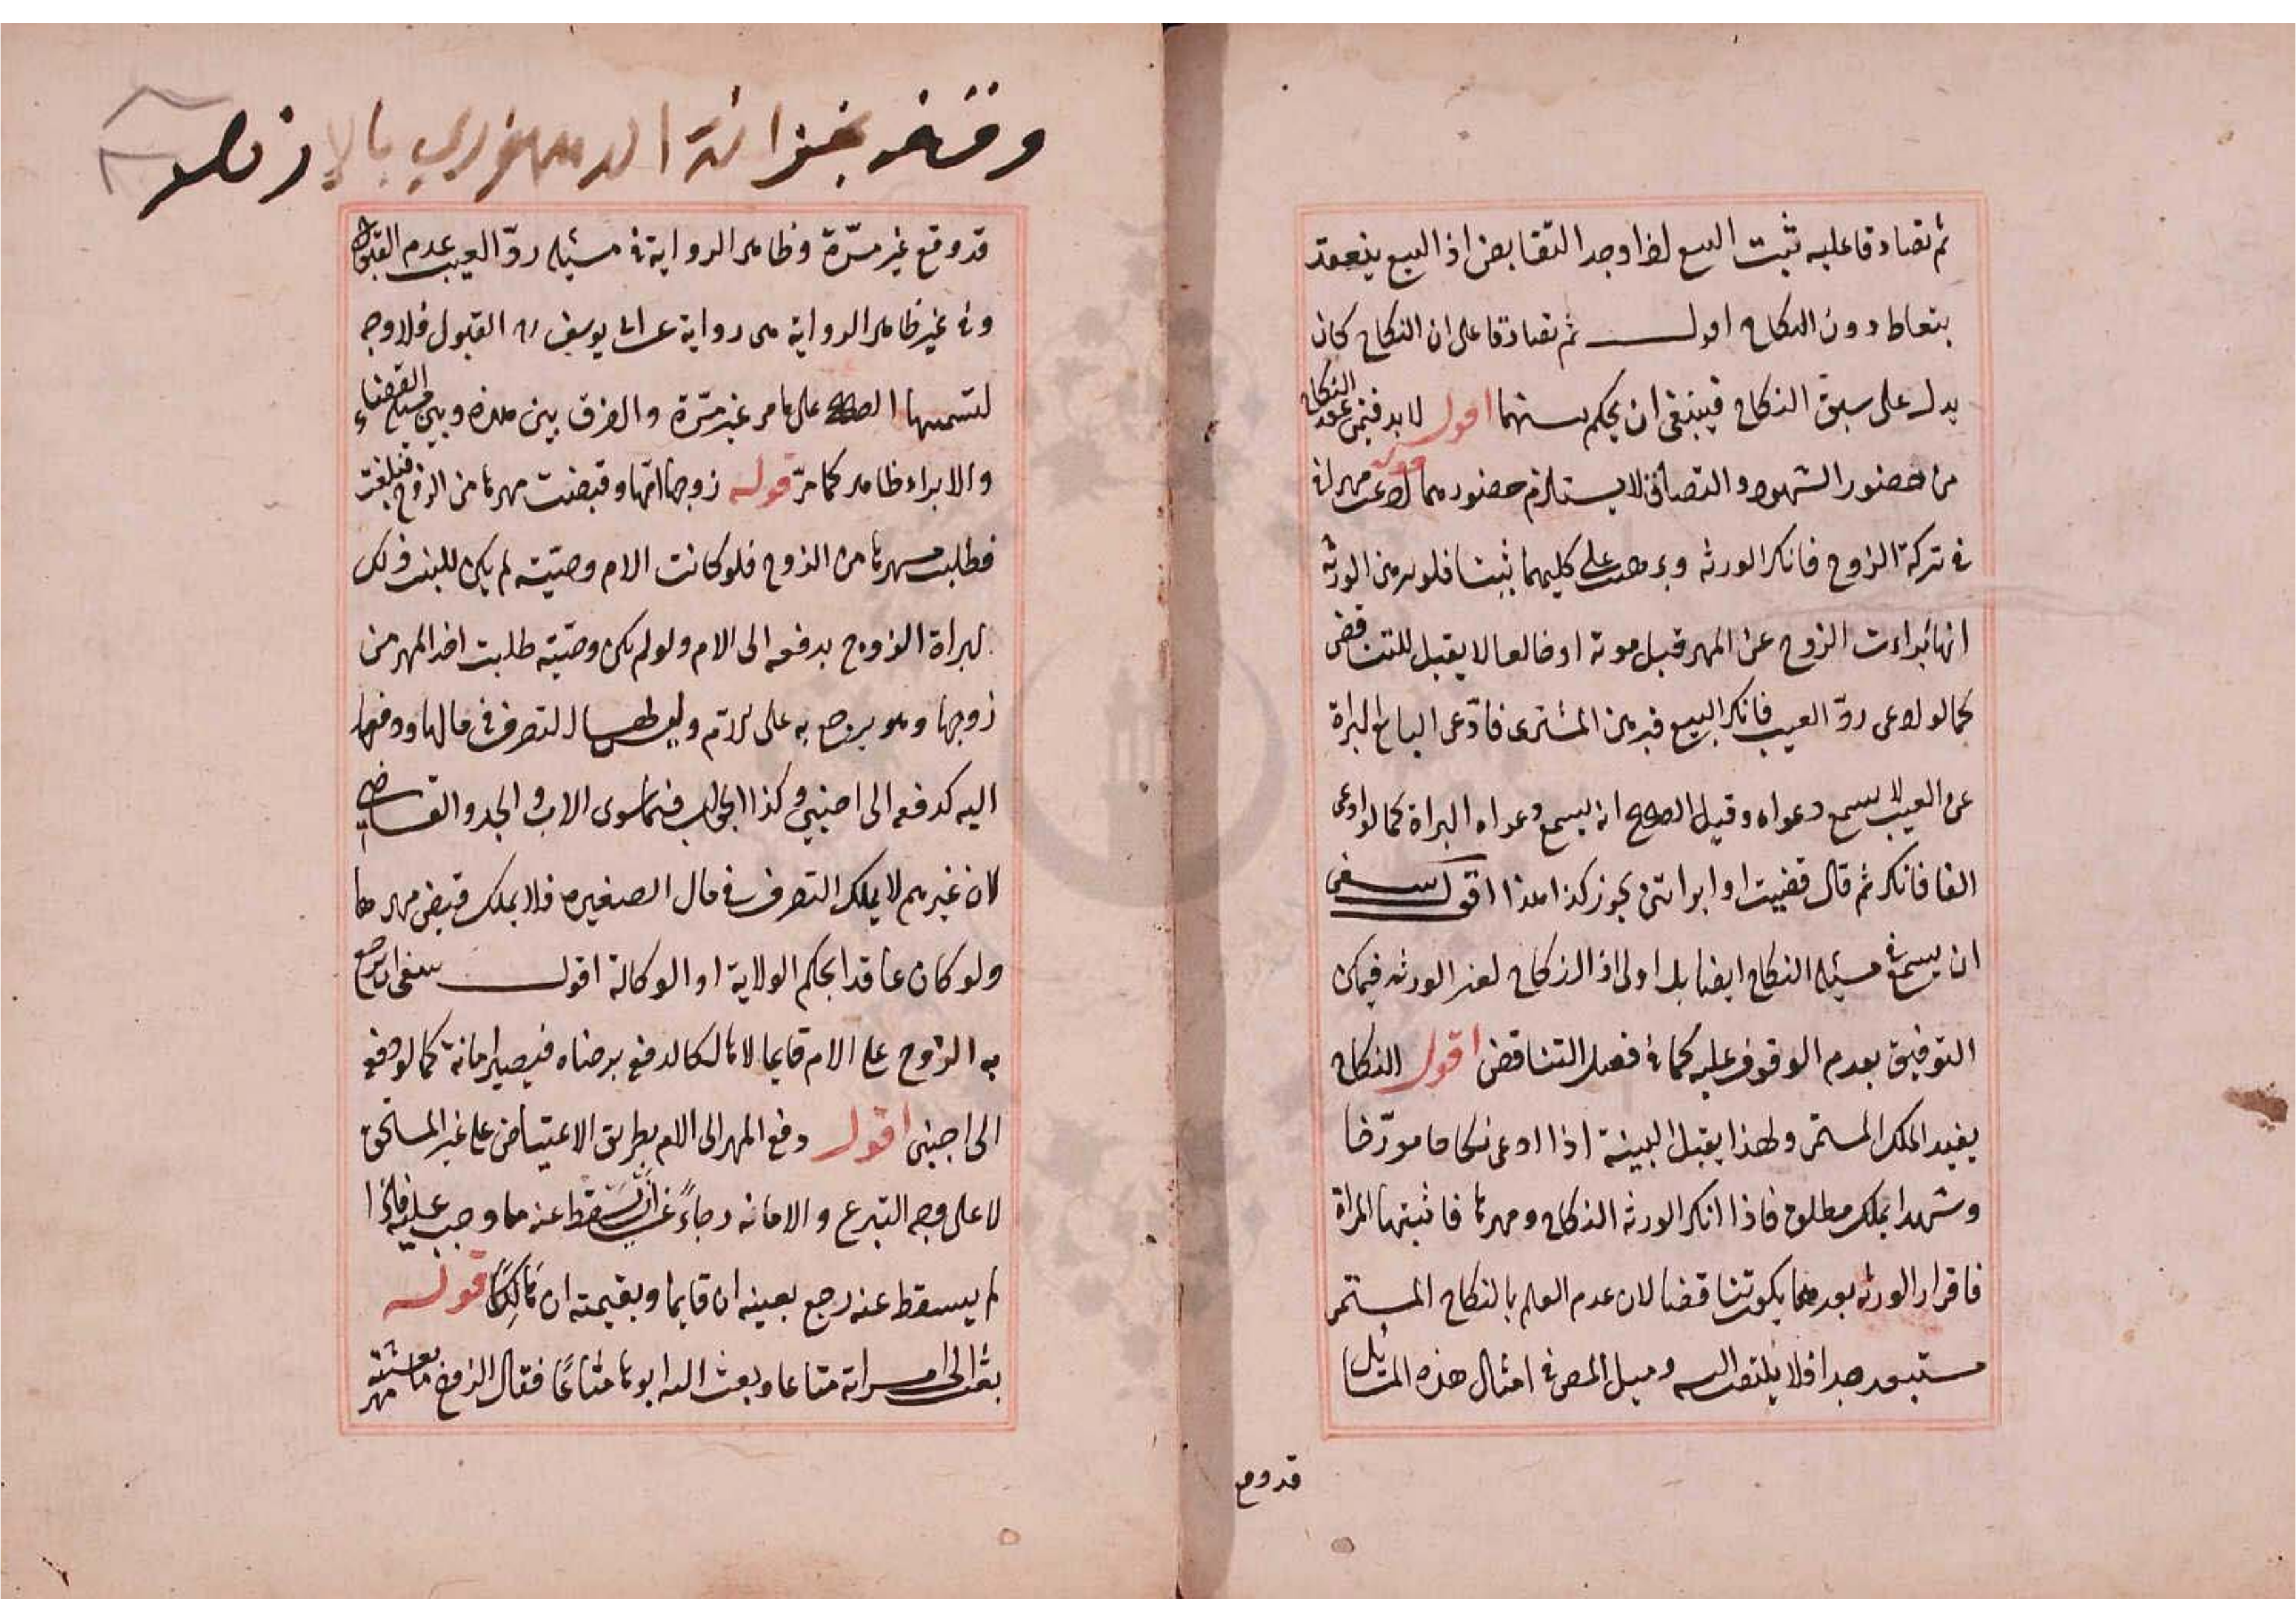 ثم تصادقا عليه ثبت البيع اذا وجد التقابض اذ البيع ينعقد
بتعاط دون النكاح اقول ثم تصادقا على ان النكاح كان
يدل على سبق النكاح فينبغي ان يحكم بينهما اقول لابد في عقد النكاح
من حضور الشهود والتصادق لا يستلزم حضورهما قوله ادعت مهرا
في تركة الزوج فانكر الورثه وبرهنت على كليهما ثبتا فلو برهن الورثه
انها ابراءت الزوج عن المهر قبل موته او خالعا لا يقبل للتناقض
كما لو ادعى ردّ العيب فانكر البيع فبرهن المشترى فادّعى البايع البراة
عن العيب لا يسمع دعواه وقيل الصحيح انه يسمع دعواه البراة كما لو ادعى
الفا فانكر ثم قال قضيت او ابرأتنى يجوز كذا هذا اقول ينبغى
ان يسمع في مسئله النكاح ايضا بل اولى اذ النكاح لغير الورثه فيمكن
التوفيق بعدم الوقوف عليه كما في فصل التناقض اقول النكاح
يفيد الملك المستمر ولهذا يقبل البينة اذا ادعى نكاحا مورّخا
وشهدا بملك مطلق فاذا انكر الورثه النكاح ومهرها فاثبتها المراة
فاقرار الورثه بعدهما يكون تناقضا لان عدم العلم بالنكاح المستمر
مستبعد جدا فلا يلتفت اليه وميل المص في امثال هذه المسائل
قد وقع
وقف بخزانة الدمنهوري بالازهر
قد وقع غير مرّة وظاهر الرواية في مسئله ردّ العيب عدم القبول
وفي غير ظاهر الرواية هى رواية عن ابى يوسف رح القبول فلا وجه
لتسميها الصحيح على ما مر غير مرّة والفرق بين هذه وبين مسئلة القضاء
والابراء ظاهر كما مرّ قوله زوجها امّها وقبضت مهرها من الزوج فبلغت
فطلبت مهرها من الزوج فلو كانت الام وصيّته لم يكن للبنت ذلك
لبراة الزوج بدفعه الى الام ولو لم يكن وصيّته طلبت اخذ المهر من
زوجها وهو يرجع به على الام وليس لها التصرف في مالها ودفعها
اليه كدفعه الى اجنبي وكذا الجواب فيما سوى الاب والجد والقاضي
لان غيرهم لا يملك التصرف في مال الصغيره فلا يملك قبض مهرها
ولو كان عاقدا بحكم الولاية او الوكالة اقول ينبغى ان يرجع
به الزوج على الام قايما لا هالكا لدفع برضاه فيصير امانة كما لو دفع
الى اجنبى اقول دفع المهر الى الام بطريق الاعتياض على غير المستحق
لا على وجه التبرع والامانه رجاءً عن ان يسقط عنه ما وجب عليه فاذا
لم يسقط عنه رجع بعينه ان قايما وبقيمته ان هالكًا قوله
بعث الى امراته متاعا وبعث اليه ابوها متاعًا فقال الزوج ما بعثته مهر